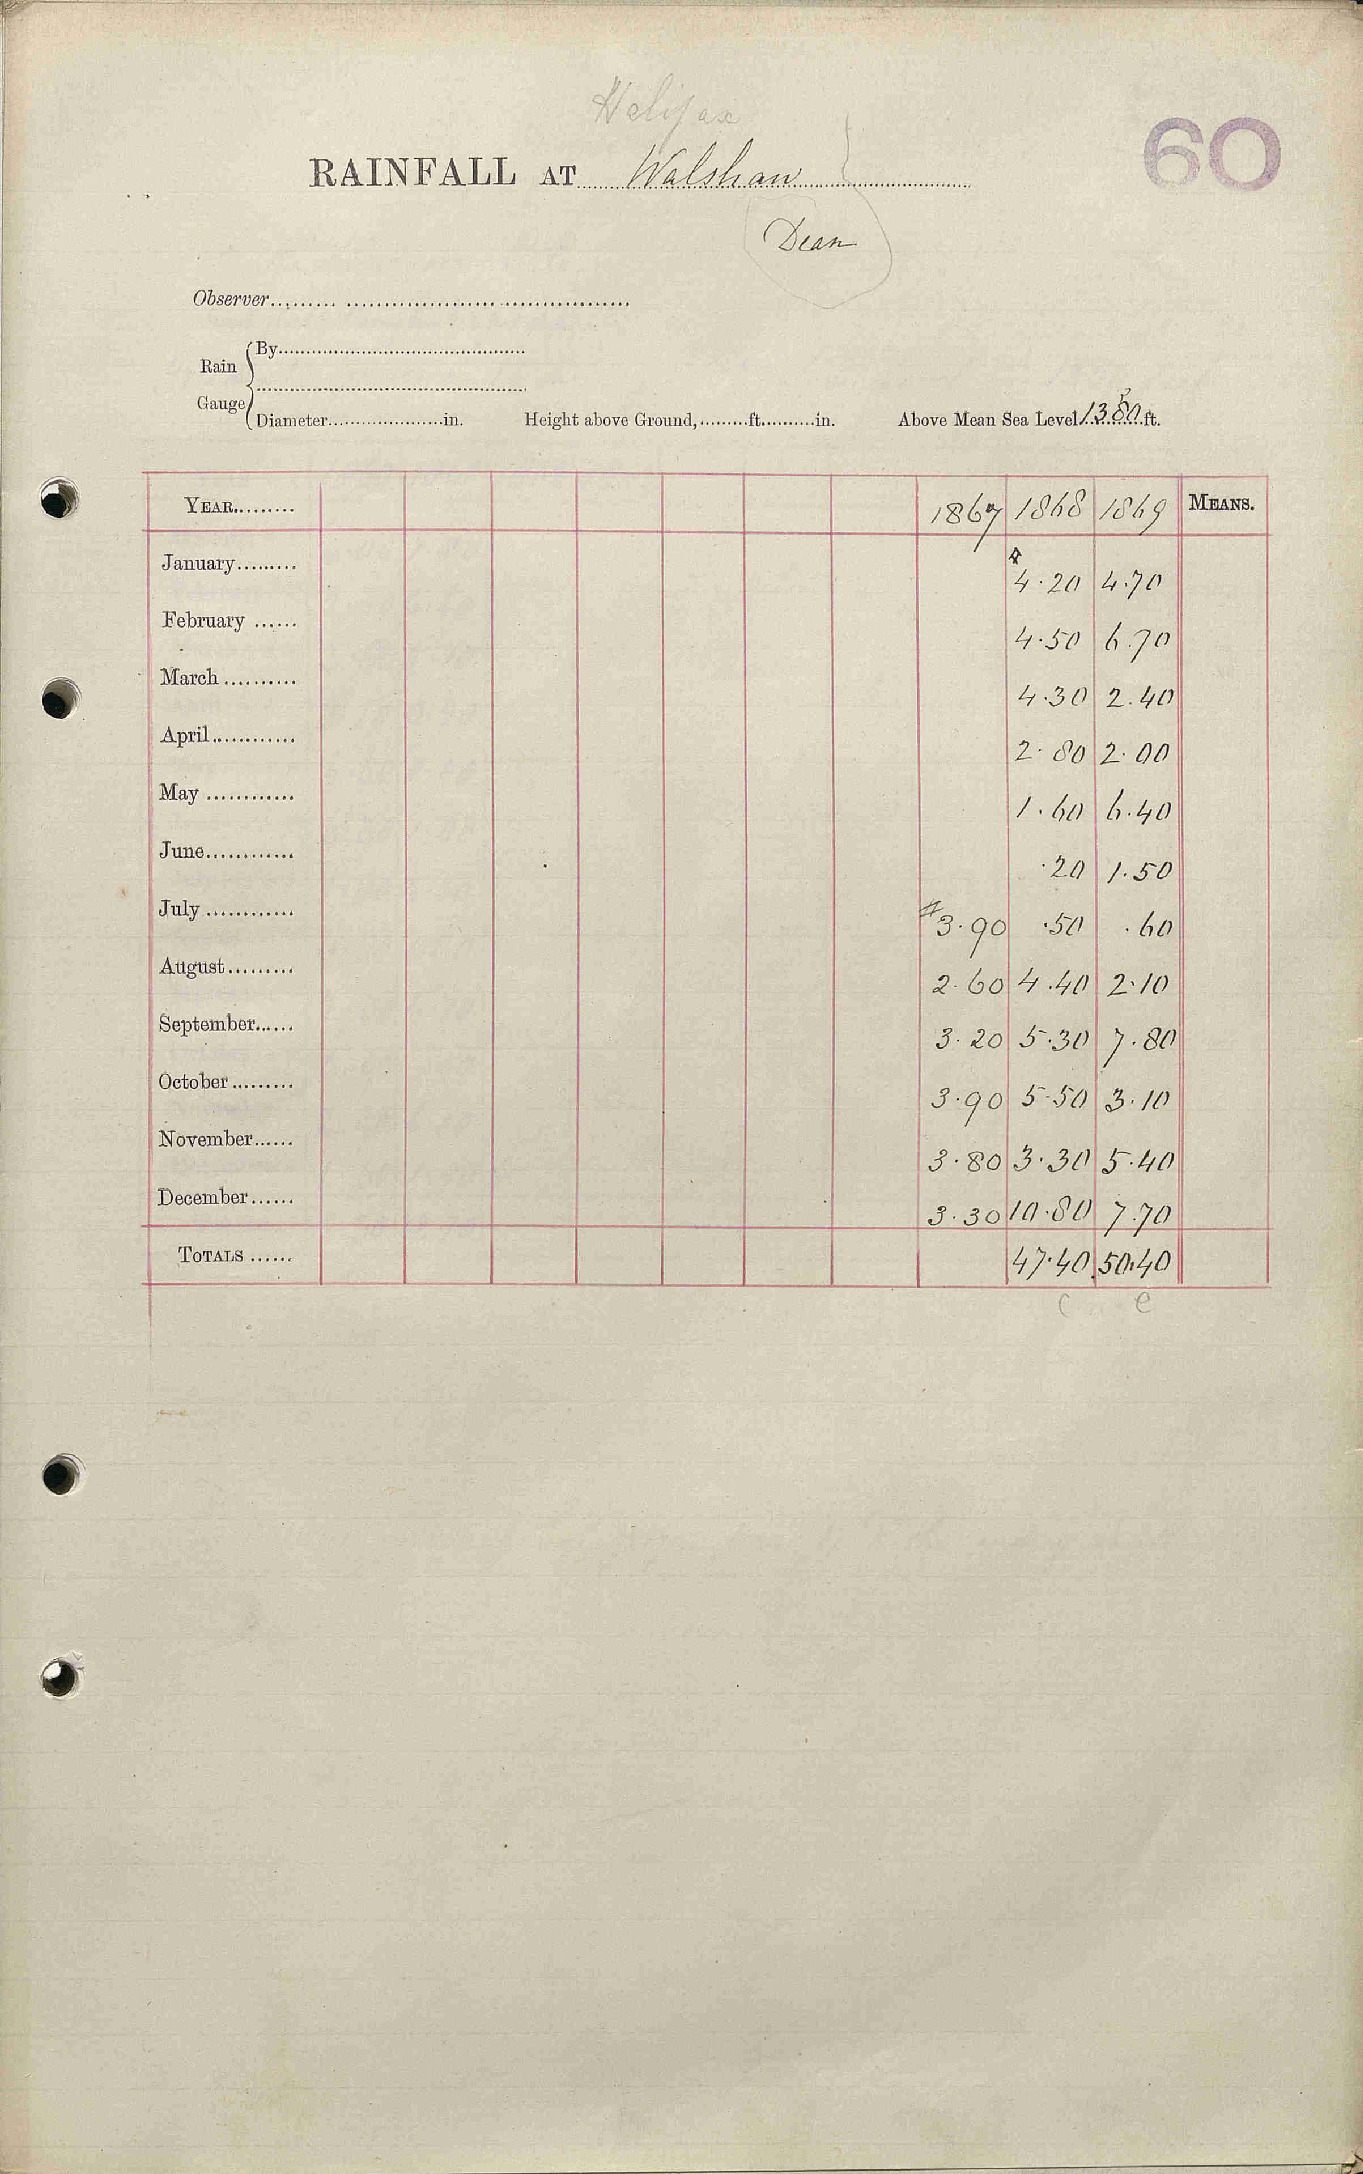 Halifax
60
RAINFALL AT Walshaw
Dean
Observer
Rain Gauge { By
Diameter in. Height above Ground, ft. in. Above Mean Sea Level 1380 ft.
YEAR 1867 1868 1869 MEANS.
January 4.20 4.70
February 4.50 6.70
March 4.30 2.40
April 2.80 2.00
May 1.60 6.40
June .20 1.50
July #3.90 .50 .60
August 2.60 4.40 2.10
September 3.20 5.30 7.80
October 3.90 5.50 3.10
November 3.80 3.30 5.40
December 3.30 10.80 7.70
TOTALS 47.40 50.40
c e